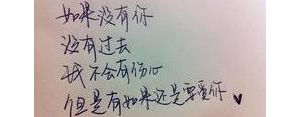 如果没有你
没有过去
我不会有伤心
但是有如果还是要爱你 ♥